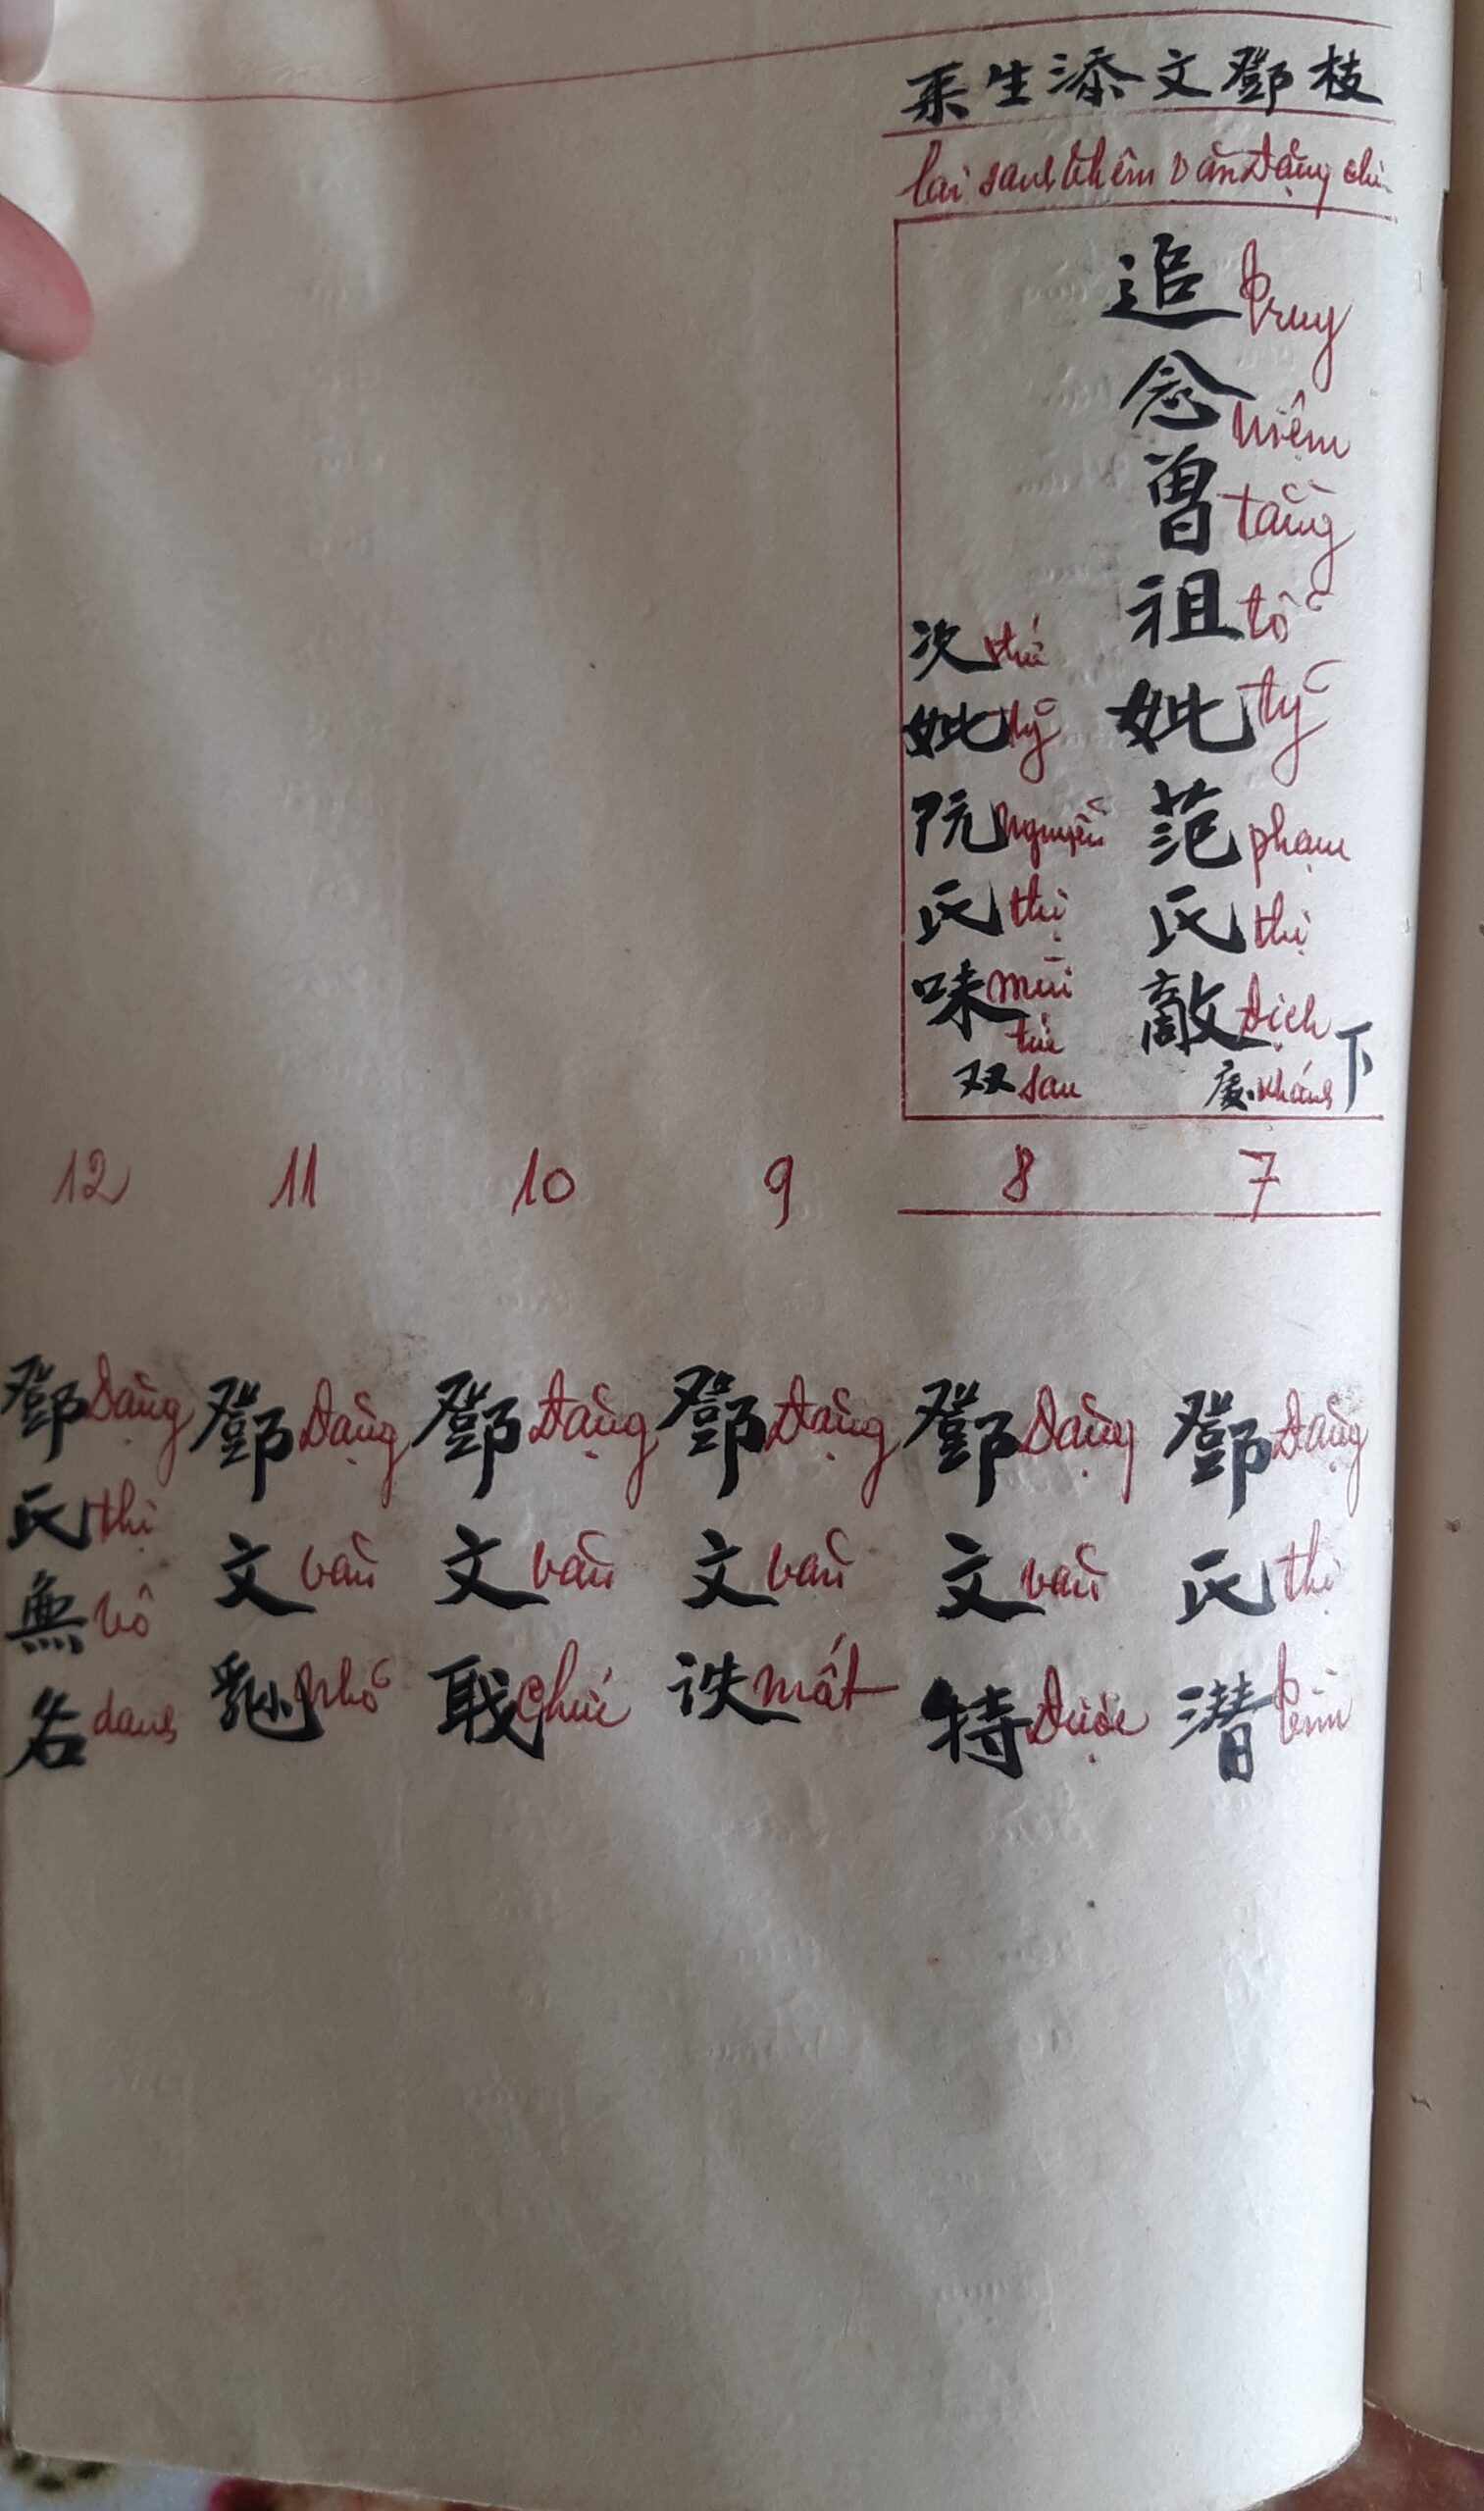 枝鄧文添生来
lai sanh thêm văn Đặng chi
追 truy
念 niệm
曾 tằng
祖 tổ
妣 tỷ
范 phạm
氏 thị
敵 Địch
下
次 thứ
妣 tỷ
阮 nguyễn
氏 thị
味 mùi
双 sau
7
8
9
10
11
12
鄧 Đặng
氏 thị
潜 tìm
鄧 Đặng
文 văn
特 Được
鄧 Đặng
文 văn
mất
鄧 Đặng
文 văn
chức
鄧 Đặng
文 văn
nhỏ
鄧 Đặng
氏 thị
無 vô
名 danh